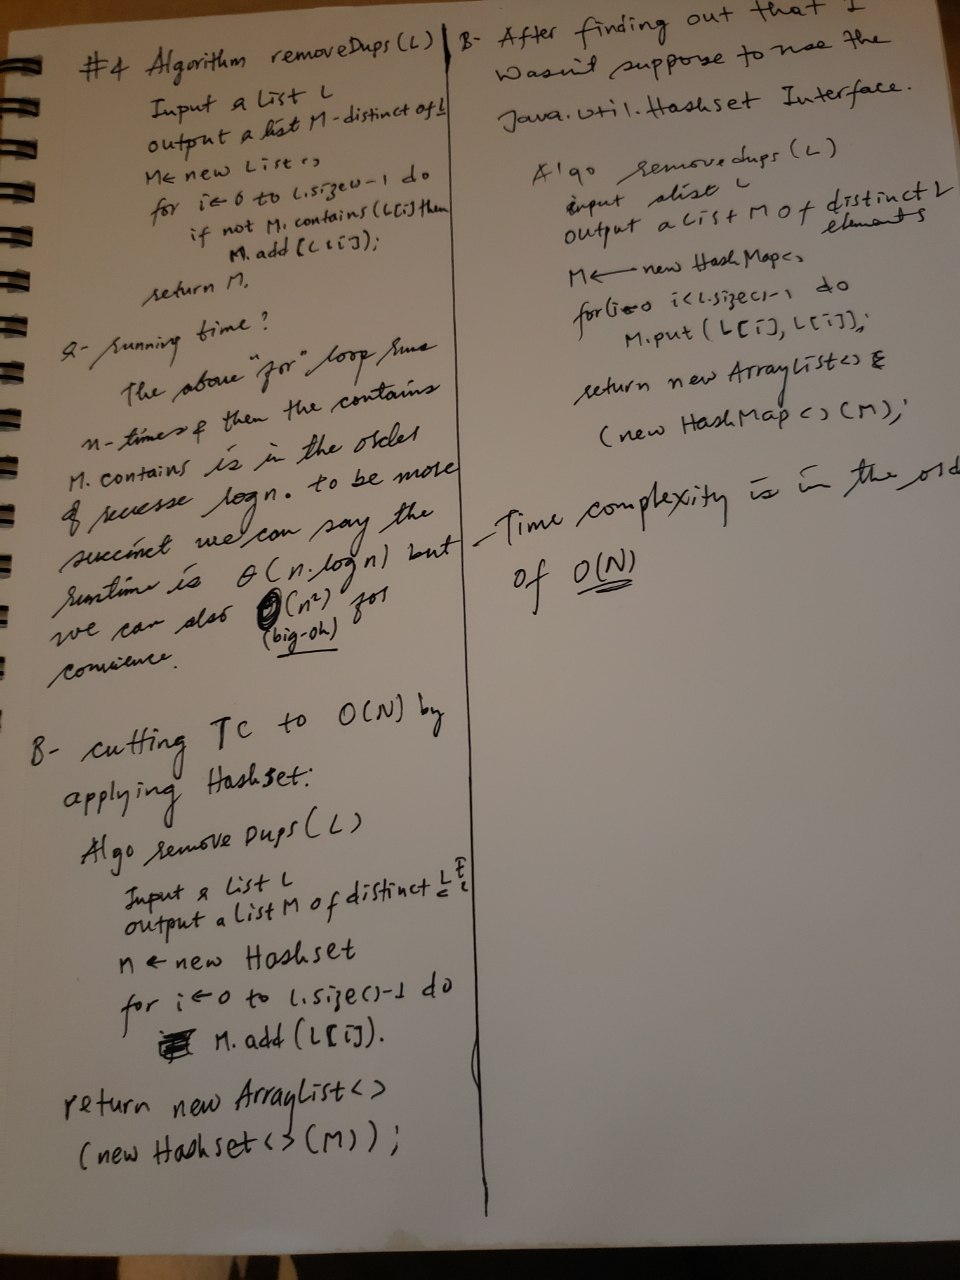 #4 Algorithm removeDups(L)
Input a List L
output a list M-distinct of L
M← new List<>
for i← 0 to L.size()-1 do
if not M.contains(L[i] then
M.add [L[i]);
return M.
a- running time?
The above "for" loop runs
n-times & then the contains
M.contains is in the order
of log n. to be more
succinct we can say the
runtime is θ(n.log n) but
we can also O(n²) for
(big-oh)
B- cutting TC to O(N) by
applying Hashset:
Algo remove Dups(L)
Input a List L
output a list M of distinct L
n ← new Hashset
for i←0 to L.size()-1 do
M.add(L[i]).
return new ArrayList<>
(new Hashset<>(M));
B- After finding out that I
wasn't suppose to use the
Java.util.Hashset Interface.
Algo removedups(L)
input a list L
output a list M of distinct L
elements
M← new HashMap<>
for(i←0 i<L.size()-1 do
M.put(L[i], L[i]);
return new ArrayList<>
(new HashMap<>(M);
-Time complexity is in the ord
of O(N)